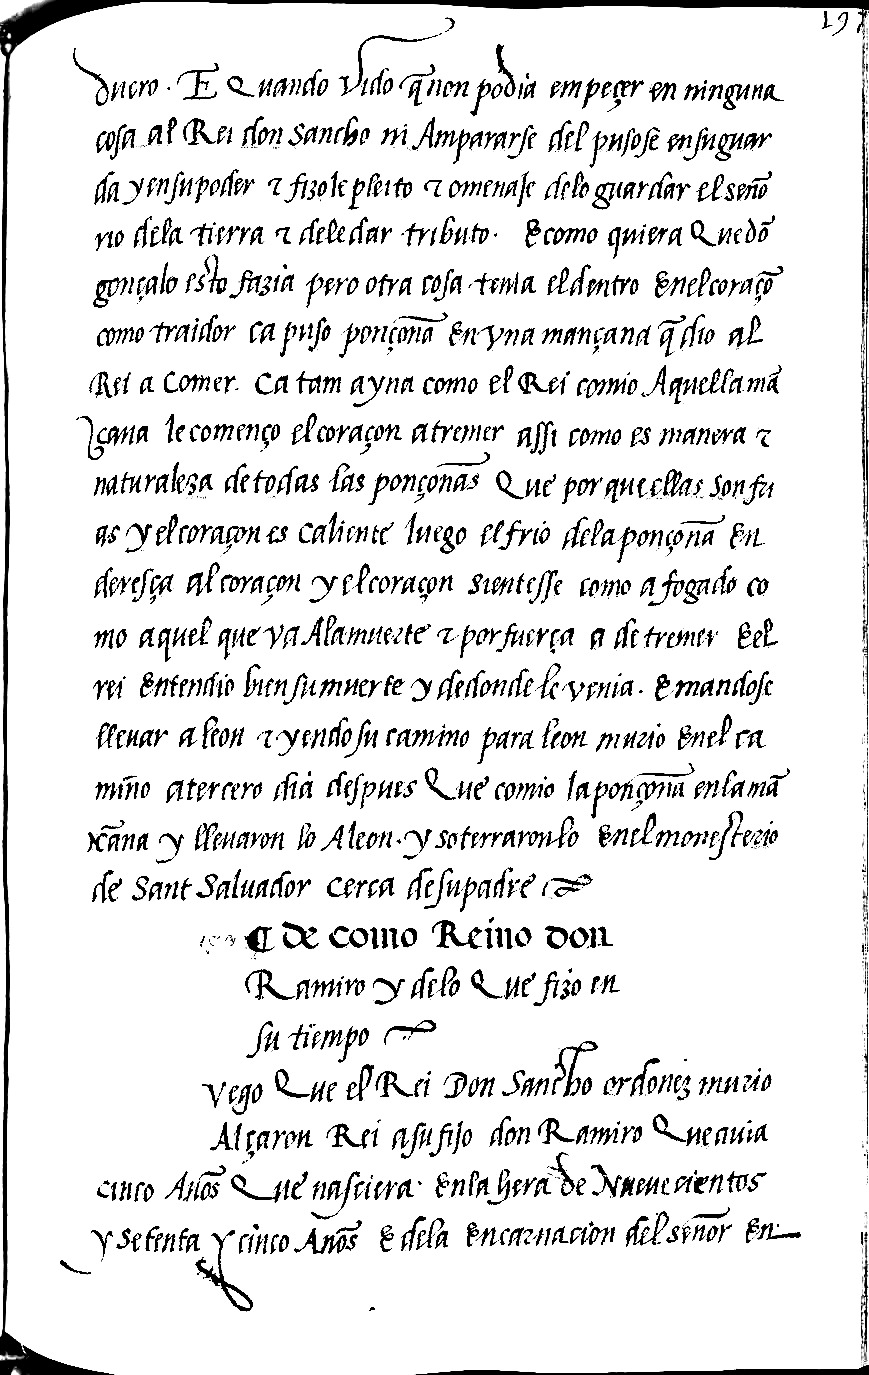 197
duero. E Quando vido q̃ non podia empeçer en ninguna
cosa al Rei don Sancho ni Ampararse del pusose en su guar
da y en su poder τ fizole pleito τ omenaje delo guardar el señõ
rio dela tierra τ dele dar tributo. E como quiera Que dõ
gonçalo esto fazia pero otra cosa tenia el dentro En el coraçõ
como traidor ca puso ponçoña En vna mançana q̃ dio al
Rei a Comer. Ca tam ayna como el Rei comio Aquella mã
çana le començo el coraçon a tremer assi como es manera τ
naturaleza de todas las ponçoñas Que por que ellas son fri
as y el coraçon es Caliente luego el frio dela ponçoña En
deresça al coraçon y el coraçon sientesse como afogado co
mo aquel que va Ala muerte τ por fuerça a de tremer E el
rei Entendio bien su muerte y de donde le venia. E mandose
lleuar a leon τ yendo su camino para leon murio En el ca
miño a tercero dia despues Que comio la ponçoña en la mã
xãna y lleuaron lo A leon. y soterraron lo En el monesterio
de Sant Saluador cerca de su padre
¶ de como Reino don
Ramiro y delo Que fizo en
su tiempo
Vego Que el Rei Don Sancho ordonez murio
Alçaron Rei a su fijo don Ramiro Que auia
cinco Años Que nasciera. En la hera de Nuevecientos
y setenta y cinco Años E dela Encarnacion del señor En